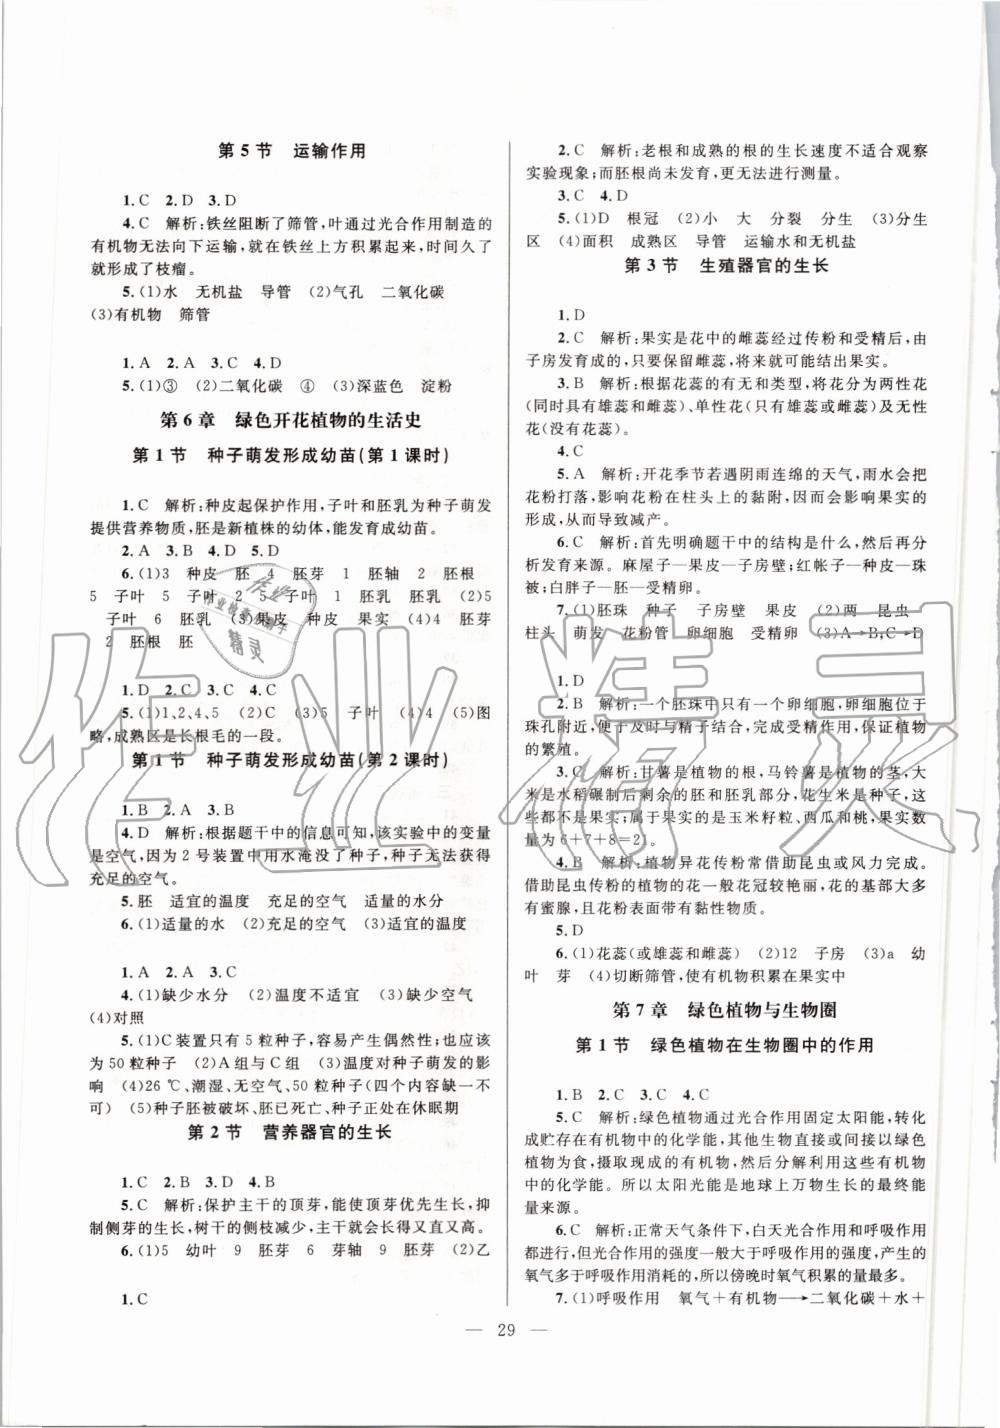 第5节　运输作用
1.C　2.D　3.D
4.C　解析:铁丝阻断了筛管,叶通过光合作用制造的
有机物无法向下运输,就在铁丝上方积累起来,时间久了
就形成了枝瘤。
5.(1)水　无机盐　导管　(2)气孔　二氧化碳
(3)有机物　筛管
1.A　2.A　3.C　4.D
5.(1)③　(2)二氧化碳　④　(3)深蓝色　淀粉
第6章　绿色开花植物的生活史
第1节　种子萌发形成幼苗(第1课时)
1.C　解析:种皮起保护作用,子叶和胚乳为种子萌发
提供营养物质,胚是新植株的幼体,能发育成幼苗。
2.A　3.B　4.D　5.D
6.(1)3　种皮　胚　4　胚芽　1　胚轴　2　胚根
5　子叶　4　2　5　子叶　1　胚乳　胚乳　(2)5
子叶　6　胚乳　(3)果皮　种皮　果实　(4)4　胚芽
2　胚根　胚
1.D　2.C　3.C　4.C
5.(1)1、2、4、5　(2)C　(3)5　子叶　(4)4　(5)图
略,成熟区是长根毛的一段。
第1节　种子萌发形成幼苗(第2课时)
1.B　2.A　3.B
4.D　解析:根据题干中的信息可知,该实验中的变量
是空气,因为2号装置中用水淹没了种子,种子无法获得
充足的空气。
5.胚　适宜的温度　充足的空气　适量的水分
6.(1)适量的水　(2)充足的空气　(3)适宜的温度
1.A　2.A　3.C
4.(1)缺少水分　(2)温度不适宜　(3)缺少空气
(4)对照
5.(1)C装置只有5粒种子,容易产生偶然性;也应该
为50粒种子　(2)A组与C组　(3)温度对种子萌发的影
响　(4)26 ℃、潮湿、无空气、50粒种子(四个内容缺一不
可)　(5)种子胚被破坏、胚已死亡、种子正处在休眠期
第2节　营养器官的生长
1.C　2.B　3.D　4.B
5.C　解析:保护主干的顶芽,能使顶芽优先生长,抑
制侧芽的生长,树干的侧枝减少,主干就会长得又直又高。
6.(1)5　幼叶　9　胚芽　6　芽轴　9　胚芽　(2)乙
1.C
2.C　解析:老根和成熟的根的生长速度不适合观察
实验现象;而胚根尚未发育,更无法进行测量。
3.C　4.D
5.(1)D　根冠　(2)小　大　分裂　分生　(3)分生
区　(4)面积　成熟区　导管　运输水和无机盐
第3节　生殖器官的生长
1.D
2.C　解析:果实是花中的雌蕊经过传粉和受精后,由
子房发育成的,只要保留雌蕊,将来就可能结出果实。
3.B　解析:根据花蕊的有无和类型,将花分为两性花
(同时具有雄蕊和雌蕊)、单性花(只有雄蕊或雌蕊)及无性
花(没有花蕊)。
4.C
5.A　解析:开花季节若遇阴雨连绵的天气,雨水会把
花粉打落,影响花粉在柱头上的黏附,因而会影响果实的
形成,从而导致减产。
6.C　解析:首先明确题干中的结构是什么,然后再分
析发育来源。麻屋子—果皮—子房壁;红帐子—种皮—珠
被;白胖子—胚—受精卵。
7.(1)胚珠　种子　子房壁　果皮　(2)两　昆虫
柱头　萌发　花粉管　卵细胞　受精卵　(3)A→B,C→D
1.D
2.B　解析:一个胚珠中只有一个卵细胞,卵细胞位于
珠孔附近,便于及时与精子结合,完成受精作用,保证植物
的繁殖。
3.C　解析:甘薯是植物的根,马铃薯是植物的茎,大
米是水稻碾制后剩余的胚和胚乳部分,花生米是种子,这
些都不是果实;属于果实的是玉米籽粒、西瓜和桃,果实数
量为6+7+8=21。
4.B　解析:植物异花传粉常借助昆虫或风力完成。
借助昆虫传粉的植物的花一般花冠较艳丽,花的基部大多
有蜜腺,且花粉表面带有黏性物质。
5.D
6.(1)花蕊(或雄蕊和雌蕊)　(2)12　子房　(3)a　幼
叶　芽　(4)切断筛管,使有机物积累在果实中
第7章　绿色植物与生物圈
第1节　绿色植物在生物圈中的作用
1.B　2.C　3.C　4.C
5.C　解析:绿色植物通过光合作用固定太阳能,转化
成贮存在有机物中的化学能,其他生物直接或间接以绿色
植物为食,摄取现成的有机物,再通过分解利用这些有机物
中的化学能。所以太阳光能是地球上万物生长的最终能
量来源。
6.C　解析:正常天气条件下,白天光合作用和呼吸作用
都进行,但光合作用的强度一般大于呼吸作用的强度,产生的
氧气多于呼吸作用消耗的,所以傍晚时氧气积累的量最多。
7.(1)呼吸作用　氧气+有机物→二氧化碳+水+
— 29 —
作业精灵